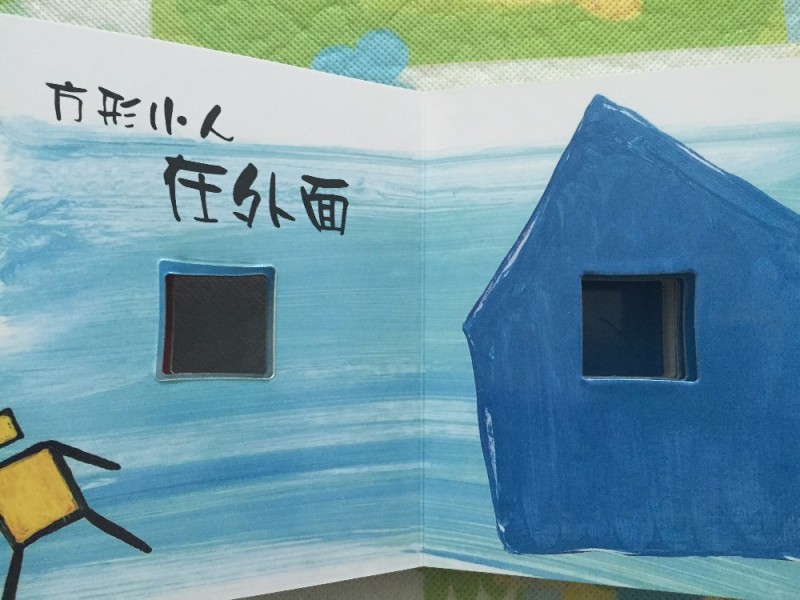 方形小人
在外面